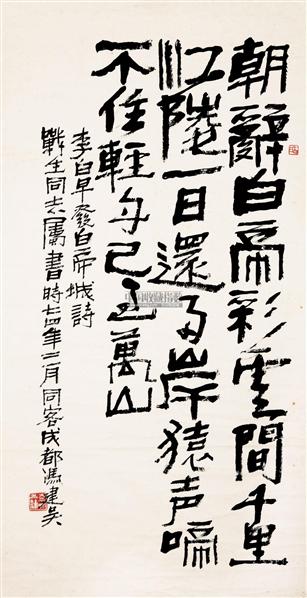 朝辭白帝彩雲間千里
江陵一日還两岸猿声啼
不住輕舟已过萬山
李白早發白帝城詩
戰生同志属書時七四年二月同客成都馮建吴